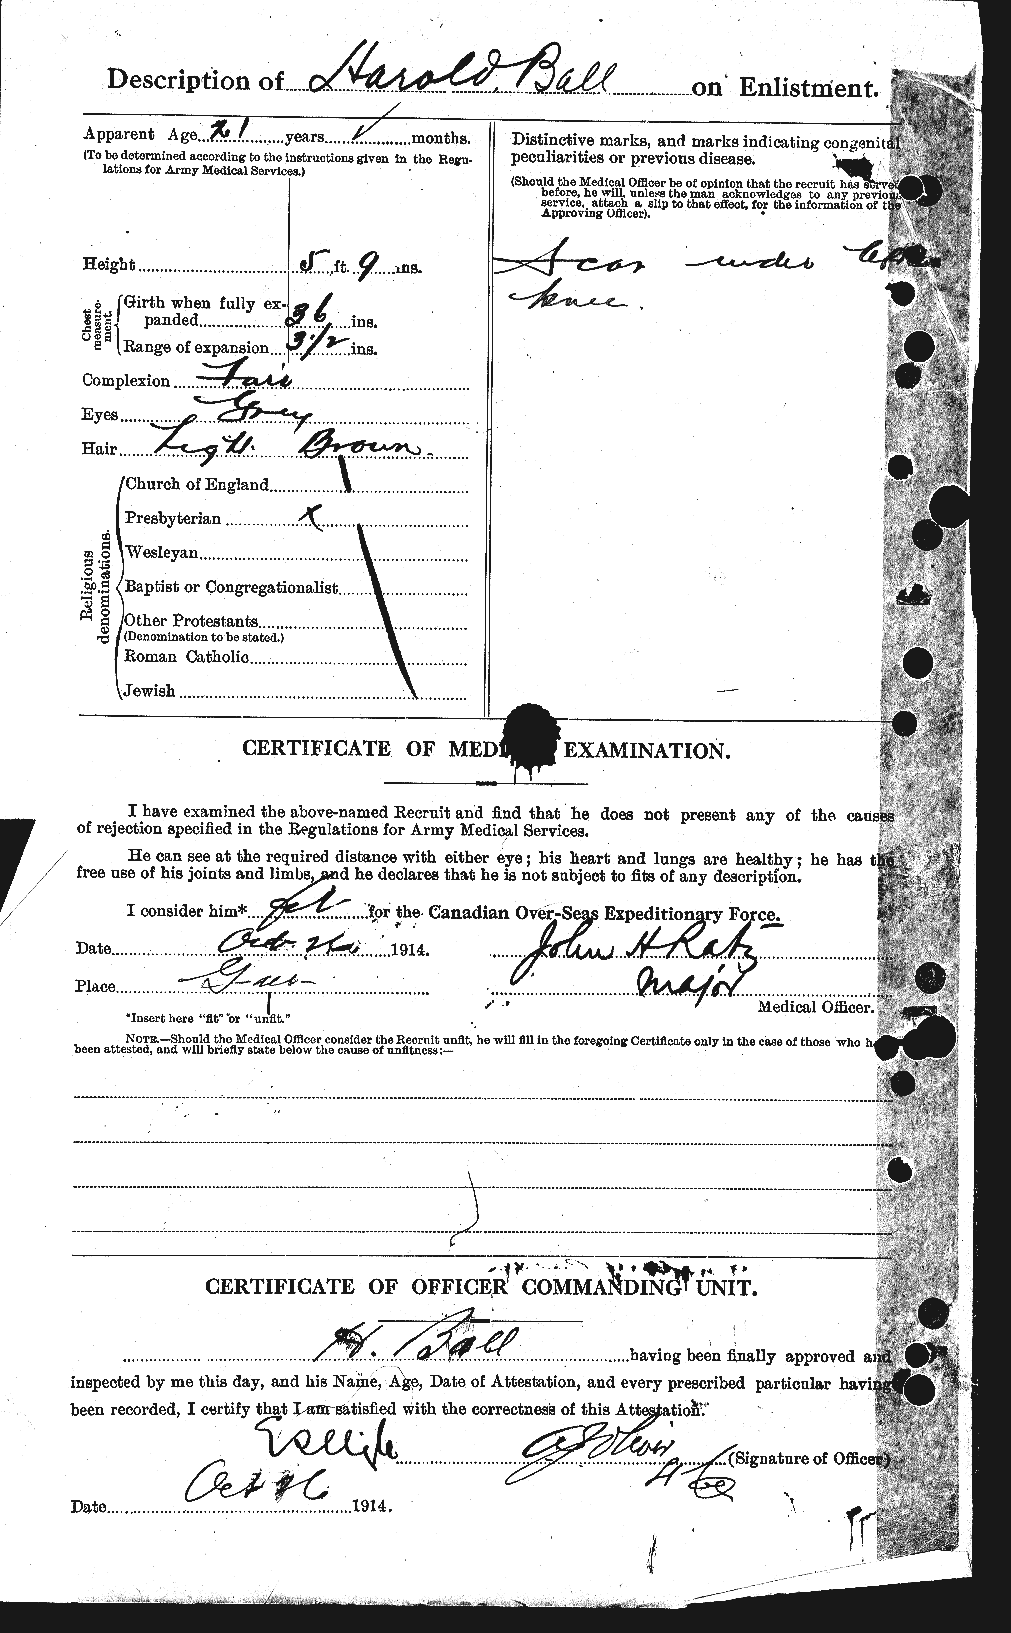 Description of Harold Ball on Enlistment.
Apparent Age 21 years months.
(To be determined according to the instructions given in the Regu-
lations for Army Medical Services.)
Height 5 ft. 9 ins.
Chest measure-ment.
Girth when fully ex-
panded 36 ins.
Range of expansion 3 1/2 ins.
Complexion Fair
Eyes Grey
Hair Light Brown.
Religious denominations.
Church of England
Presbyterian x
Wesleyan
Baptist or Congregationalist
Other Protestants
(Denomination to be stated.)
Roman Catholic
Jewish
Distinctive marks, and marks indicating congenital
peculiarities or previous disease.
(Should the Medical Officer be of opinion that the recruit has served
before, he will, unless the man acknowledges to any previous
service, attach a slip to that effect, for the information of the
Approving Officer).
Scar under
knee.
CERTIFICATE OF MEDICAL EXAMINATION.
I have examined the above-named Recruit and find that he does not present any of the causes
of rejection specified in the Regulations for Army Medical Services.
He can see at the required distance with either eye; his heart and lungs are healthy; he has the
free use of his joints and limbs, and he declares that he is not subject to fits of any description.
I consider him* fit for the Canadian Over-Seas Expeditionary Force.
Date Oct 1914. John H Ratz
Place Major
Medical Officer.
*Insert here "fit" or "unfit."
NOTE.—Should the Medical Officer consider the Recruit unfit, he will fill in the foregoing Certificate only in the case of those who
been attested, and will briefly state below the cause of unfitness:—
CERTIFICATE OF OFFICER COMMANDING UNIT.
H. Ball having been finally approved and
inspected by me this day, and his Name, Age, Date of Attestation, and every prescribed particular having
been recorded, I certify that I am satisfied with the correctness of this Attestation.
(Signature of Officer)
Oct 26
Date 1914.